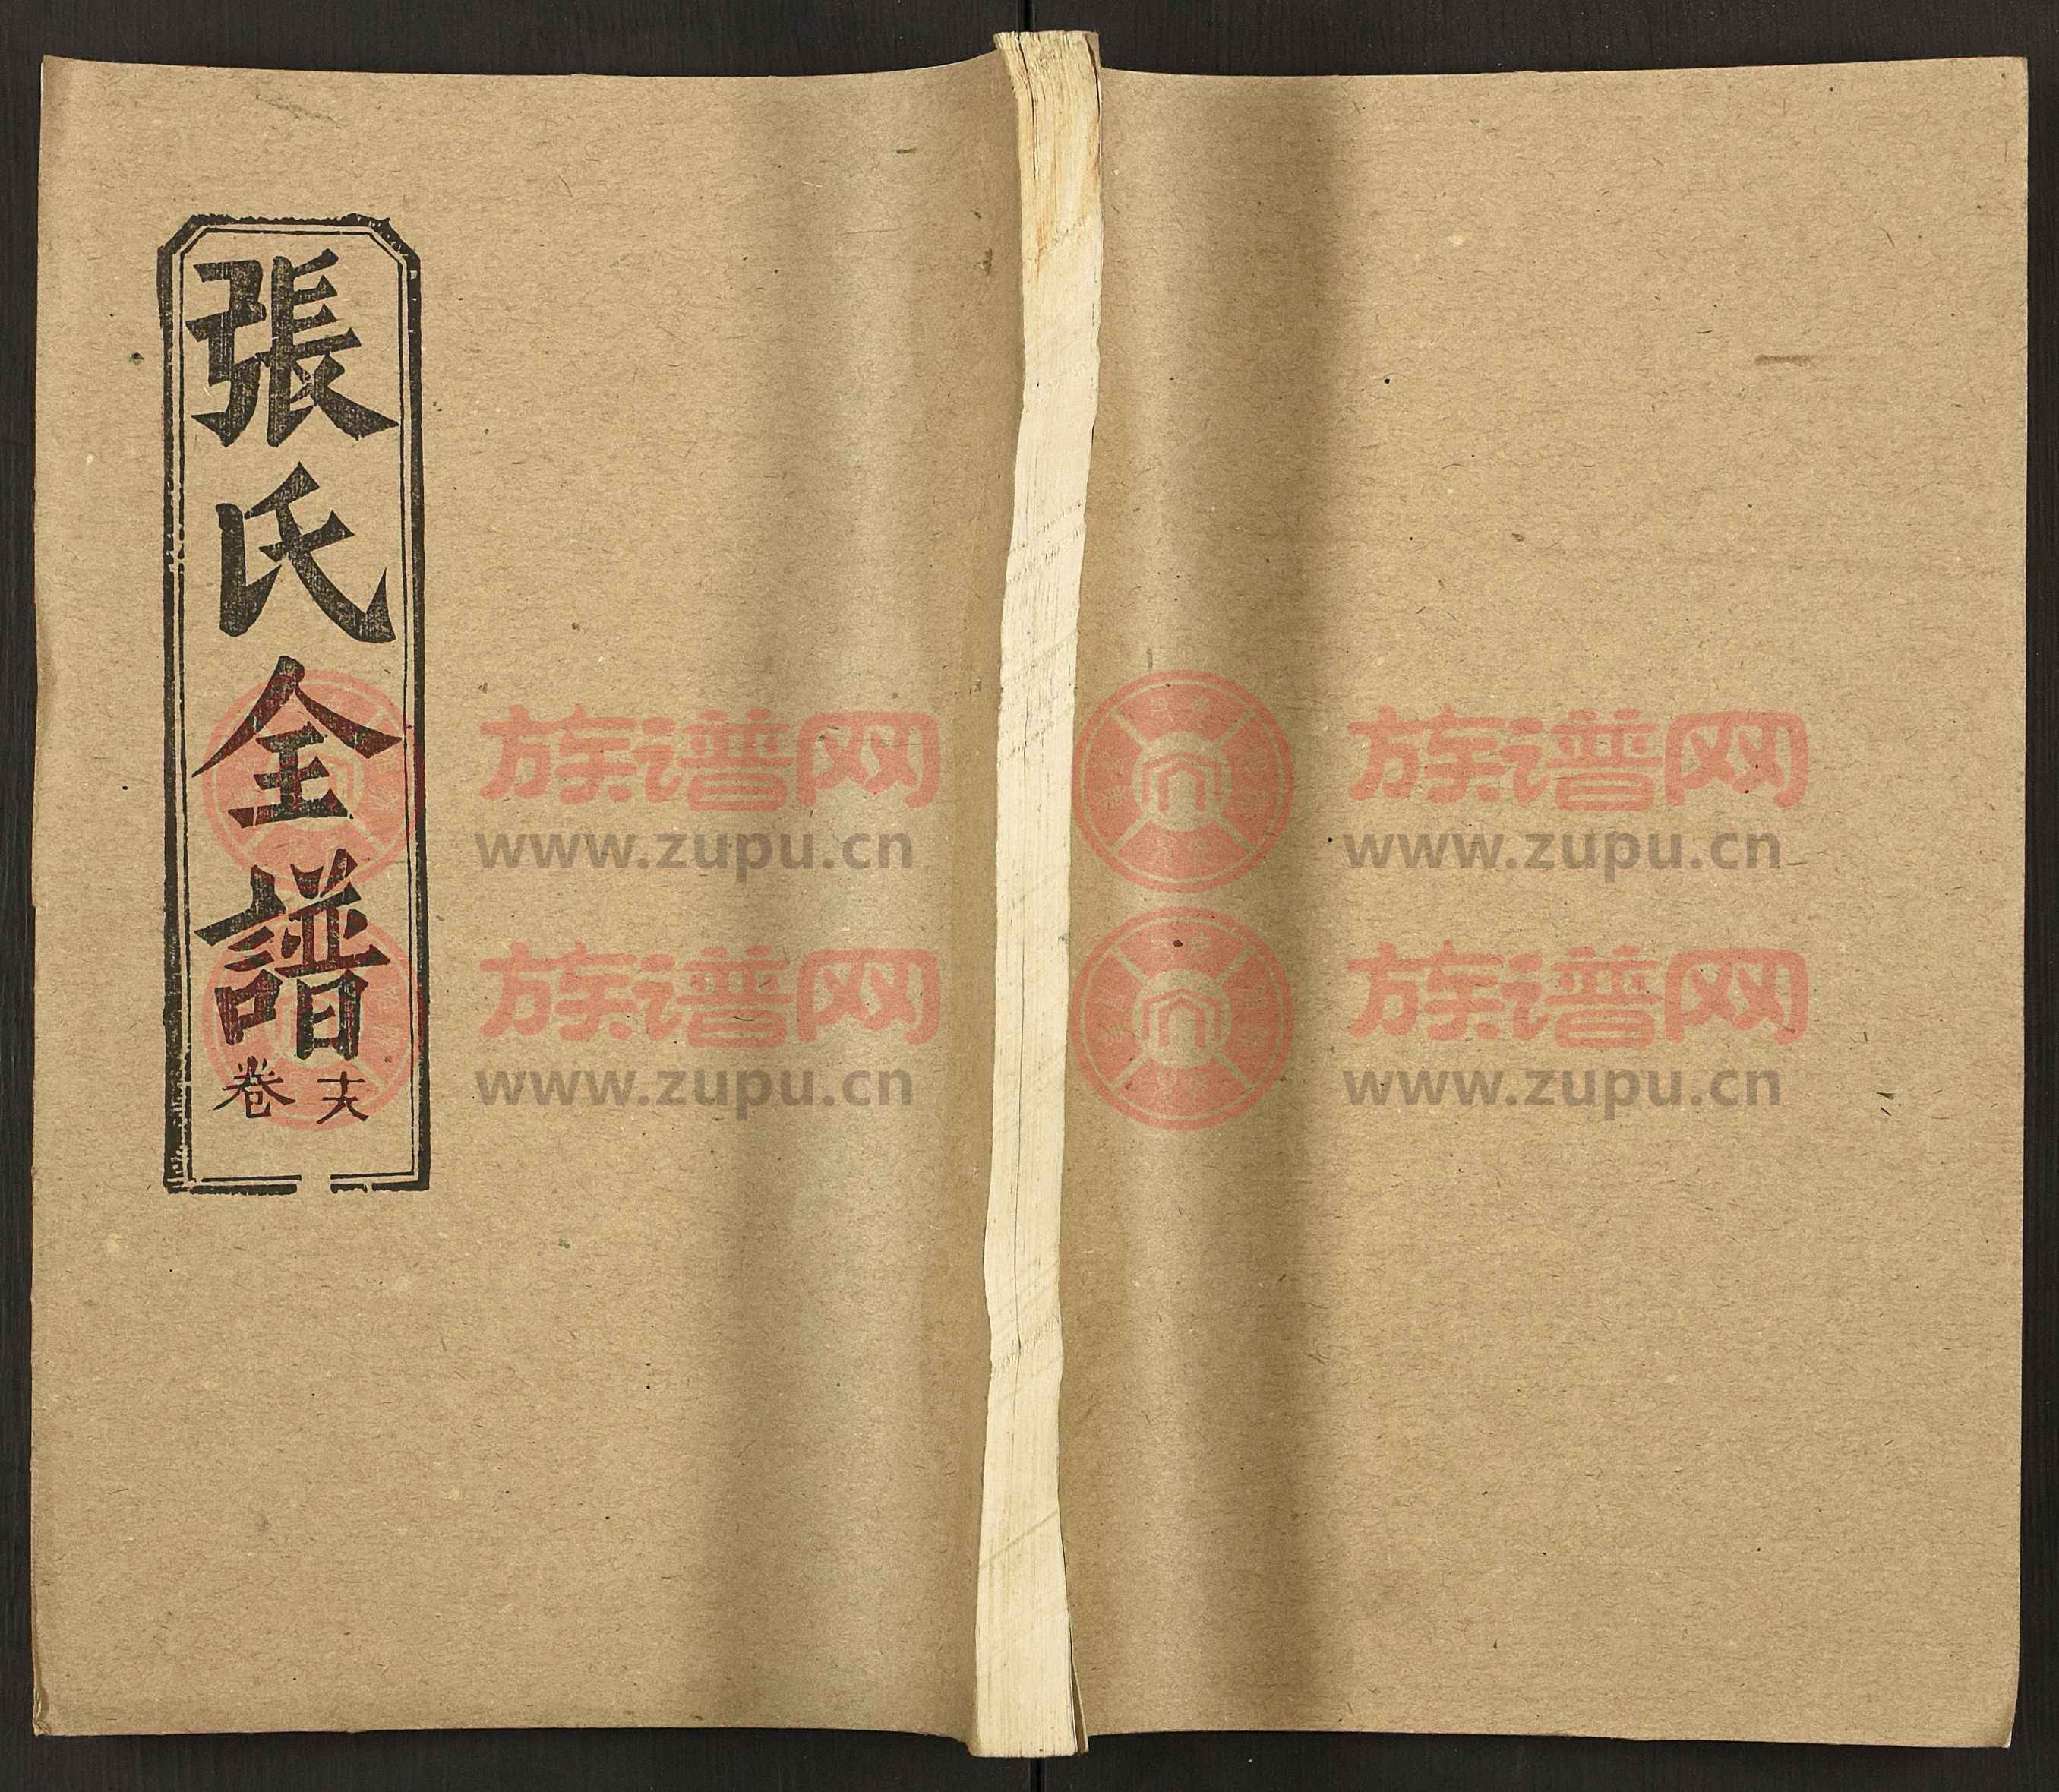 張氏全譜
卷十六
族谱网
www.zupu.cn
族谱网
www.zupu.cn
族谱网
www.zupu.cn
族谱网
www.zupu.cn